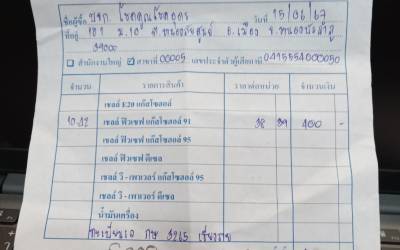 ชื่อผู้ซื้อ บจก. โชคคูณโชคอุดร วันที่ 15/06/67
ที่อยู่ 181 ม.10 ต.หนองบัว อ.เมือง จ.หนองบัวลำภู
39000
สำนักงานใหญ่ สาขาที่ 00005 เลขประจำตัวผู้เสียภาษี 0415554000050
จำนวน รายการสินค้า ราคาต่อหน่วย จำนวนเงิน
เชลล์ E20 แก๊สโซฮอล์
10.42 เชลล์ ฟิวเซฟ แก๊สโซฮอล์ 91 38 39 400 -
เชลล์ ฟิวเซฟ แก๊สโซฮอล์ 95
เชลล์ ฟิวเซฟ ดีเซล
เชลล์ วี - เพาเวอร์ แก๊สโซฮอล์ 95
เชลล์ วี - เพาเวอร์ ดีเซล
น้ำมันเครื่อง
ทะเบียนรถ กษ 3265 เชียงราย